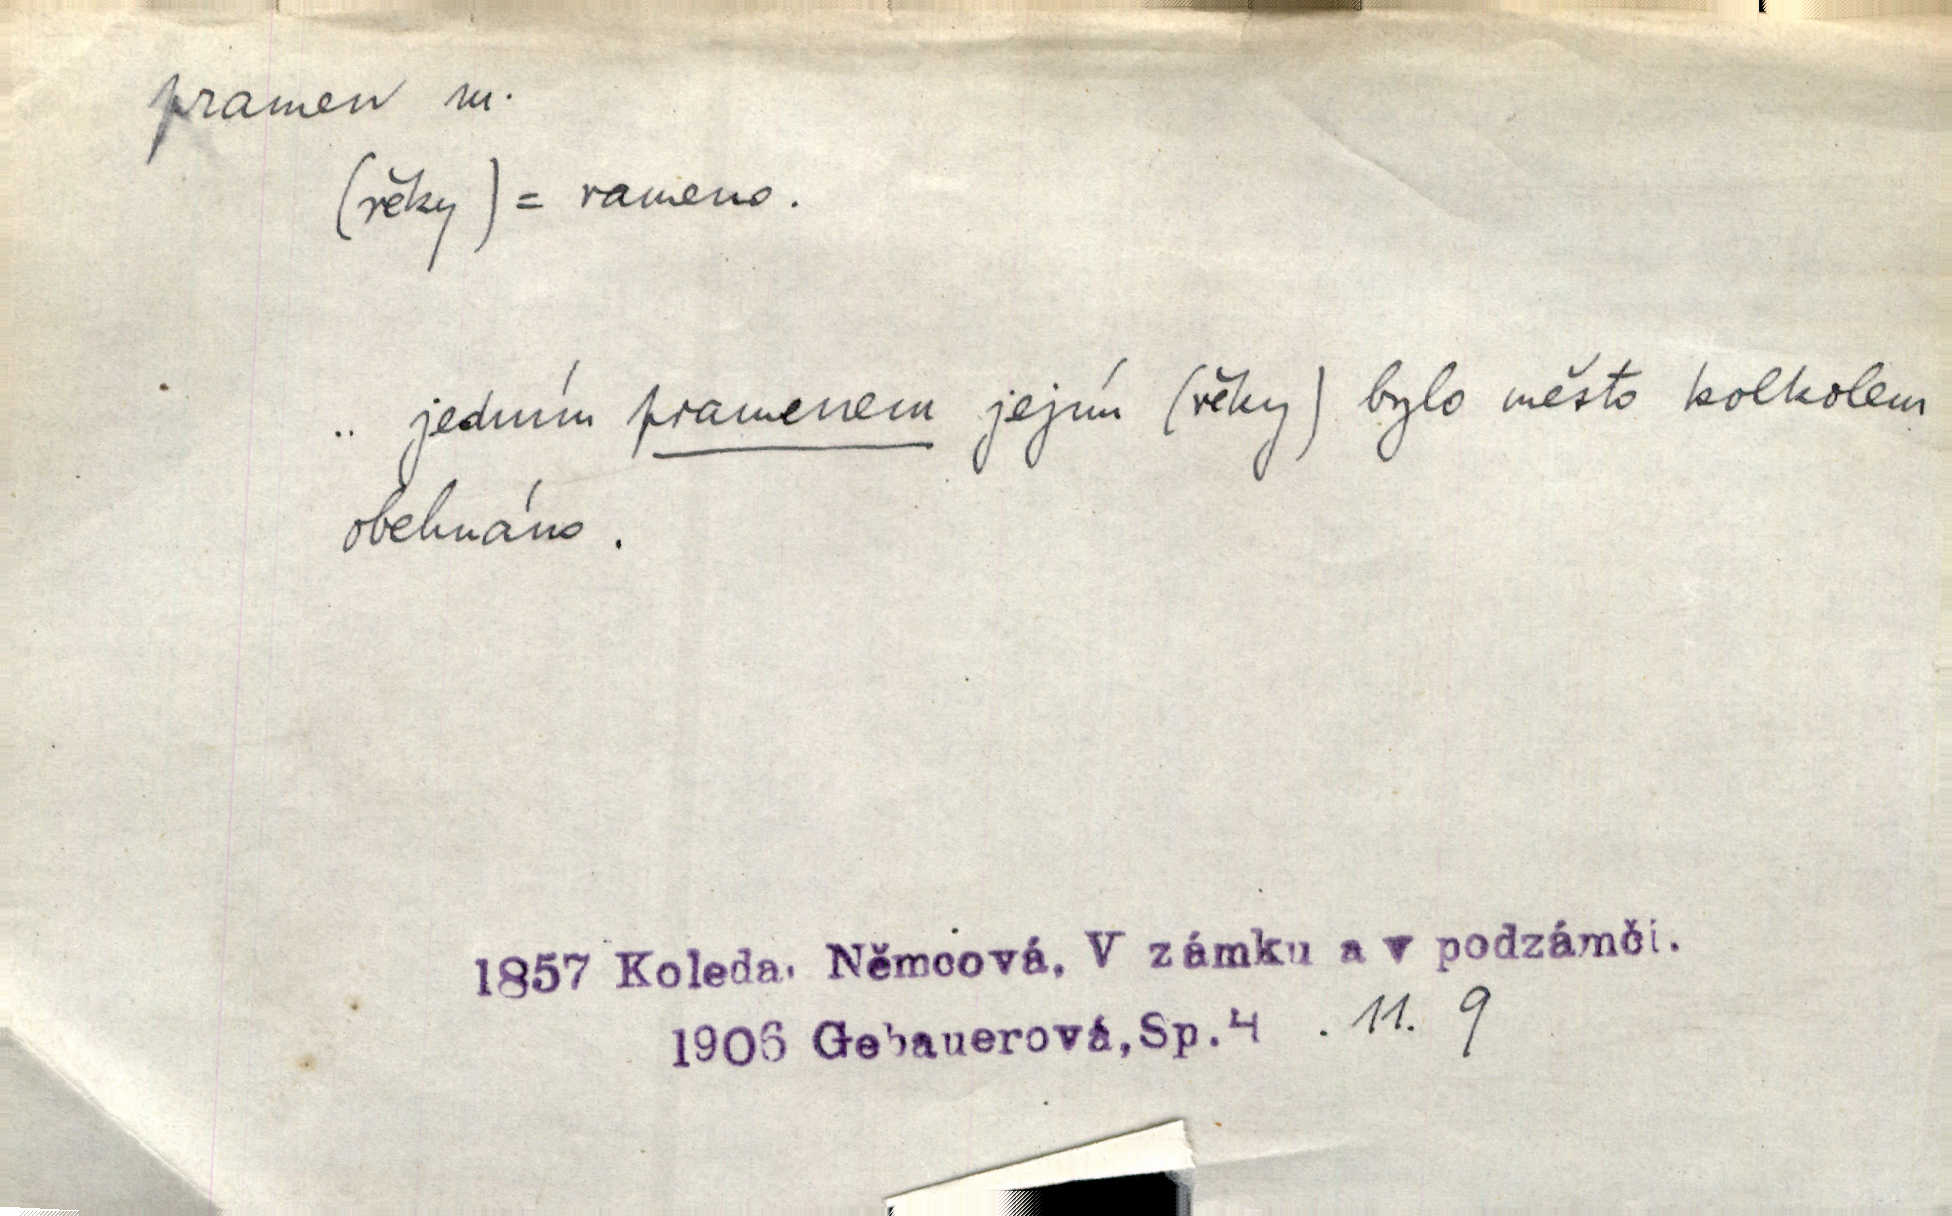 pramen m.
(řěky) = rameno.
.. jedním pramenem jejím (řěky) bylo město kolkolem
obehnáno.
1857 Koleda. Němcová, V zámku a v podzámčí.
1906 Gebauerová, Sp. 4 . 11. 9